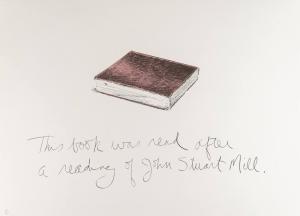 This book was read after
a reading of John Stuart Mill.